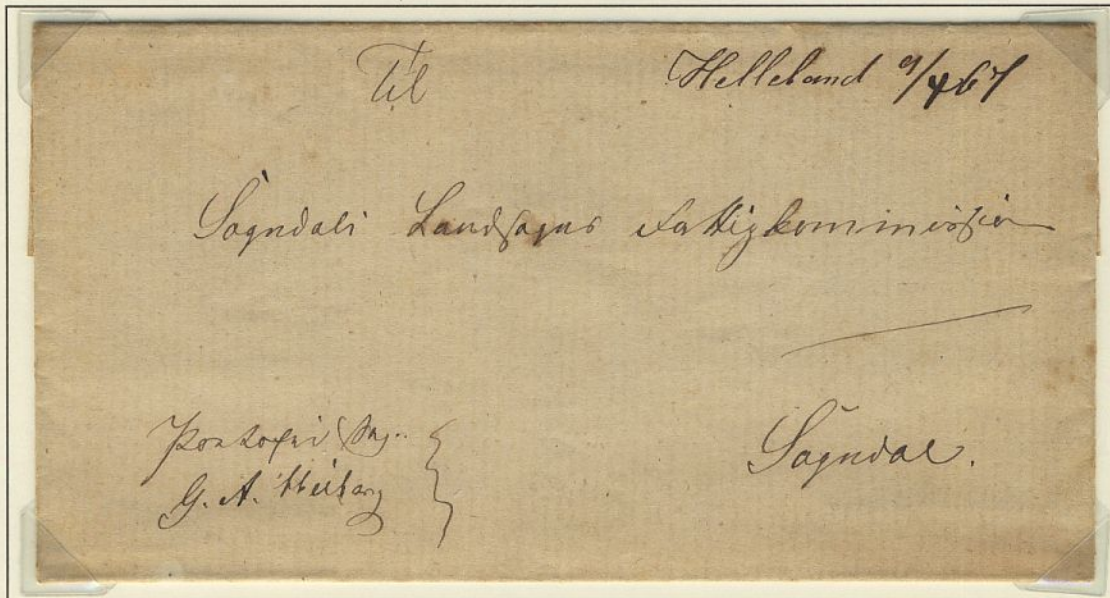 Til
Helleland 9/4 67
Sogndals Landsogns Fattigkommission
Sogndal.
Portofri Sag.
G. A.